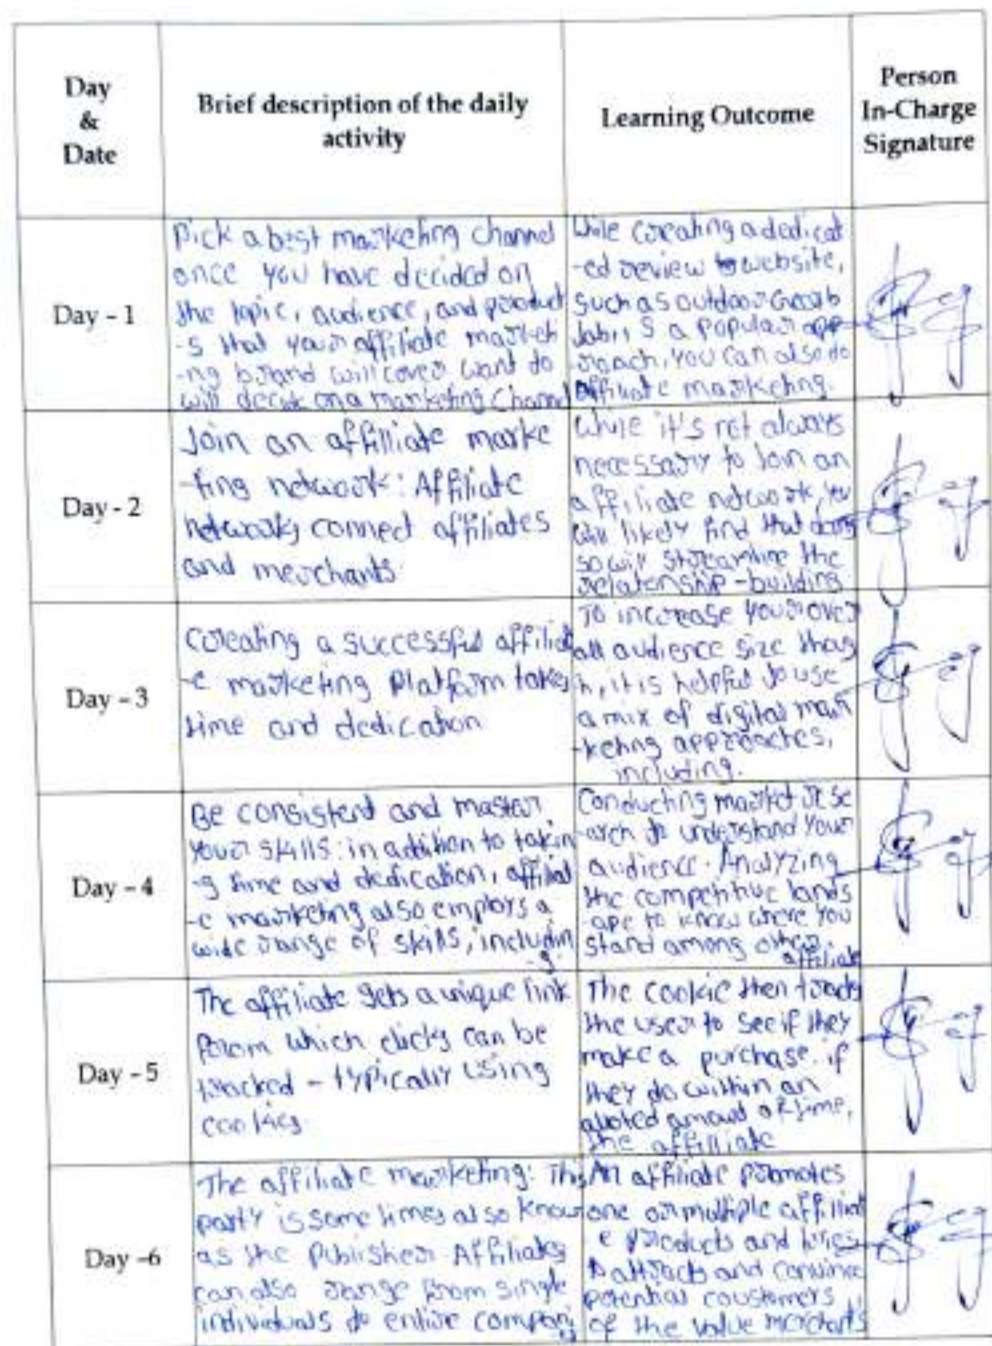 Day
&
Date
Brief description of the daily
activity
Learning Outcome
Person
In-Charge
Signature
Day - 1
Pick a best marketing channel
once you have decided on
the topic, audience, and product
-s that your affiliate market
-ng brand will cover want do
will decide on a marketing Channel
While creating a dedicat
-ed review website,
such as outdoor Gear
is a popular app
-roach, you can also do
affiliate marketing.
Day - 2
Join an affilliate marke
-ting network: Affiliate
networks connect affiliates
and merchants
While it's not always
necessary to Join an
affiliate network, you
will likely find that doing
so will streamline the
relationship-building
Day - 3
Creating a successful affiliat
-e marketing Platform takes
time and dedication
To increase your over
all audience size thoug
h, it is helpful to use
a mix of digital mar
-keting approaches,
including.
Day - 4
Be consistent and master
your skills: in addition to takin
-g time and dedication, affiliat
-e marketing also employs a
wide range of skills, includin
-g.
Conducting market rese
-arch to understand your
audience. Analyzing
the competitive lands
-ape to know where you
stand among other
affiliate
Day - 5
The affiliate gets a unique link
from which clicks can be
tracked - typically using
cookies
The cookie then tracks
the user to see if they
make a purchase. if
they do within an
amount of time,
the affilliate
Day -6
The affiliate marketing: This
party is some times also know
as the Publisher Affiliates
can also range from single
individuals to entire compani
es
An affiliate promotes
one or multiple affiliat
e products and tries
to attracts and convince
potential coustomers
of the value merchants